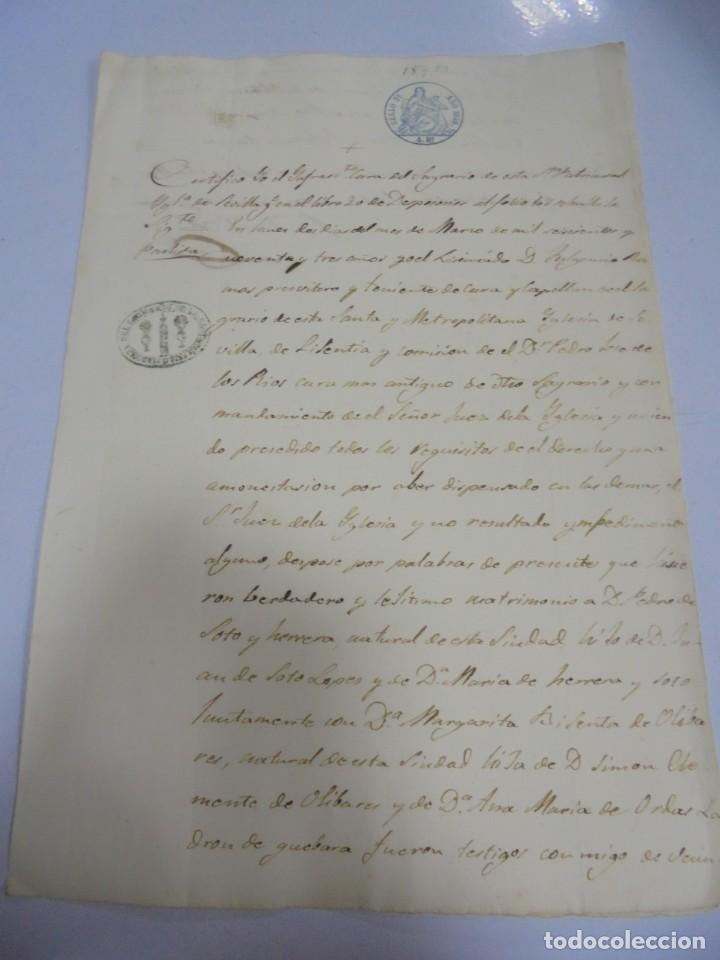 SELLO 9º AÑO 18
Certifico Yo el Infraes. Cura del Sagrario de esta Sta. Patriarcal
Ygla. de Sevilla q. en el libro 20 de Desposorios al folio
Partida
En lunes dos dias del mes de Marzo de mil seiscientos y
noventa y tres años yo el Lisensiado D.
mas presvitero y teniente de Cura y Capellan en el Sa
grario de esta Santa y Metropolitana Yglesia de Se
villa, de Lisentia y comision de el Dr. Pedro Jose de
los Rios cura mas antiguo de dho Sagrario y con
mandamiento de el Señor Juez de la Yglesia y avien
do presedido todos los requisitos de el derecho y una
amonestasion por aber dispensado en las demas, el
Sr. Juez de la Yglesia y no resultado ympedimento
alguno, despose por palabras de presente que hisie
ron berdadero y lesitimo matrimonio a D. Pedro de
Soto y herrera, natural de esta Siudad, hiJo de D. Ju
an de Soto Lopes y de Da. Maria de herrera y Soto
Juntamente con Da. Margarita Bisenta de Oliba
res, natural de esta Siudad hiJa de D Simon Cle
mente de Olibares y de Da. Ana Maria de Ordas La
dron de guebara fueron testigos con migo de
todocoleccion.net